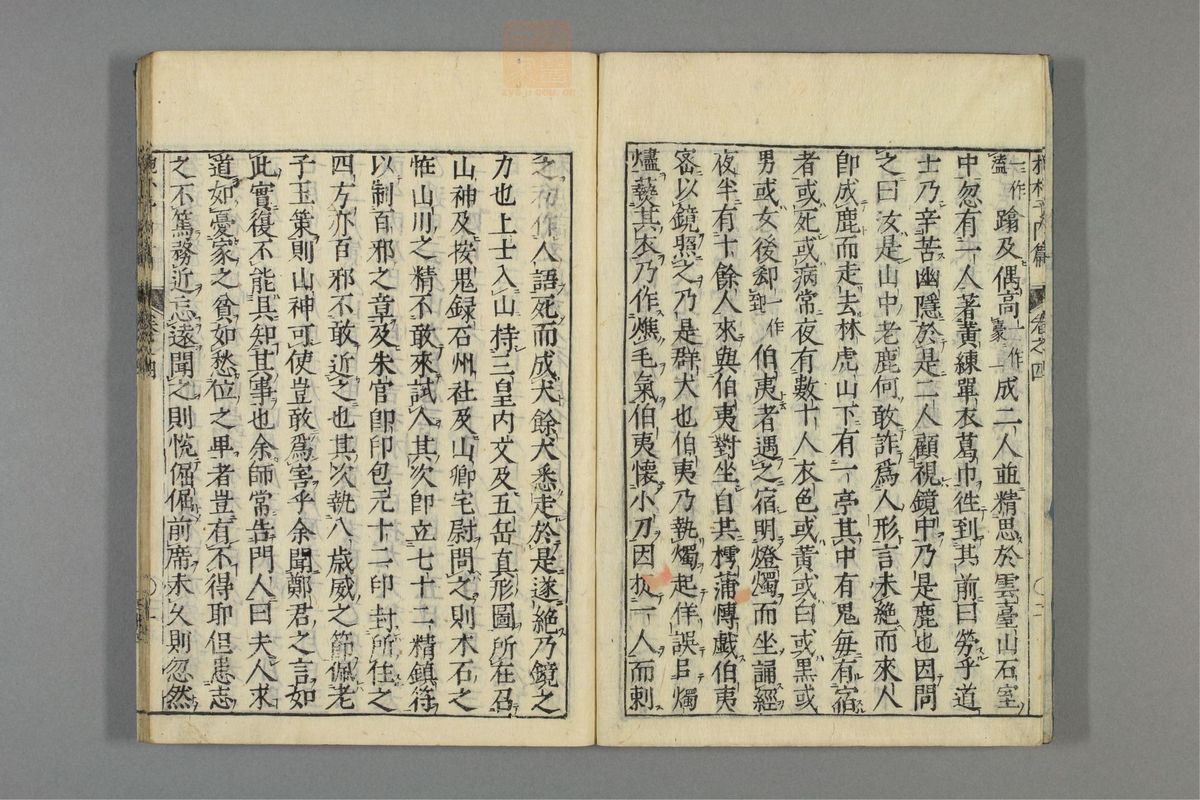 抱朴子內篇　卷之四　〇二
盍一作蹹及偶高一作豪成二人並精思於雲臺山石室
中忽有一人著黃練單衣葛巾徃到其前曰勞乎道
士乃辛苦幽隱於是二人顧視鏡中乃是鹿也因問
之曰汝是山中老鹿何敢詐爲人形言未絶而來人
卽成鹿而走去林虎山下有一亭其中有鬼毎有宿
者或死或病常夜有數十人衣色或黃或白或黒或
男或女後却一作到伯夷者遇之宿明燈燭而坐誦經
夜半有十餘人來與伯夷對坐自共樗蒲愽戯伯夷
密以鏡照之乃是群犬也伯夷乃執燭起佯誤㠯燭
燼爇其衣乃作燋毛氣伯夷懐小刀因拔一人而刺
之初作人語死而成犬餘犬悉走於是遂絶乃鏡之
力也上士入山持三皇内文及五岳真形圖所在召
山神及按鬼録召州社及山卿宅尉問之則木石之
恠山川之精不敢來試人其次卽立七十二精鎮符
以制百邪之章及朱官卽印包元十二印封所住之
四方亦百邪不敢近之也其次執八歳威之節佩老
子玉策則山神可使豈敢爲害乎余聞鄭君之言如
此實復不能具知其事也余師常告門人曰夫人求
道如憂家之貧如愁位之卑者豈有不得耶但患志
之不篤務近忘遠聞之則恱倔倔前席未久則忽然